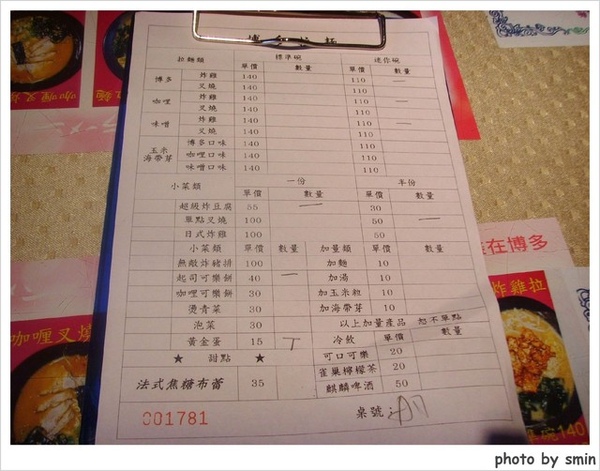 博多拉麵
拉麵類 標準碗 迷你碗
單價 數量 單價 數量
博多 炸雞 140 110
叉燒 140 110
咖哩 炸雞 140 110
叉燒 140 110
味噌 炸雞 140 110
叉燒 140 110
玉米海帶芽 博多口味 140 110
咖哩口味 140 110
味噌口味 140 110
小菜類 一份 半份
單價 數量 單價 數量
超級炸豆腐 55 30
單點叉燒 100 50
日式炸雞 100 50
小菜類 單價 數量 加量類 單價 數量
無敵炸豬排 100 加麵 10
起司可樂餅 40 加湯 10
咖哩可樂餅 30 加玉米粒 10
燙青菜 30 加海帶芽 10
泡菜 30 以上加量產品 恕不單點
黃金蛋 15 冷飲 單價 數量
★ 甜點 ★ 可口可樂 20
法式焦糖布蕾 35 雀巢檸檬茶 20
麒麟啤酒 50
001781 桌號:
在博多
炸雞拉
咖哩叉燒
photo by smin